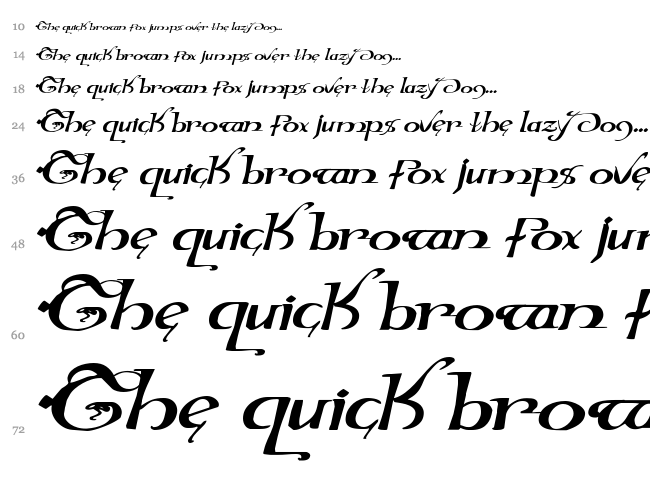 10 The quick brown fox jumps over the lazy dog...
14 The quick brown fox jumps over the lazy dog...
18 The quick brown fox jumps over the lazy dog...
24 The quick brown fox jumps over the lazy dog...
36 The quick brown fox jumps ove
48 The quick brown fox jur
60 The quick brown f
72 The quick brow